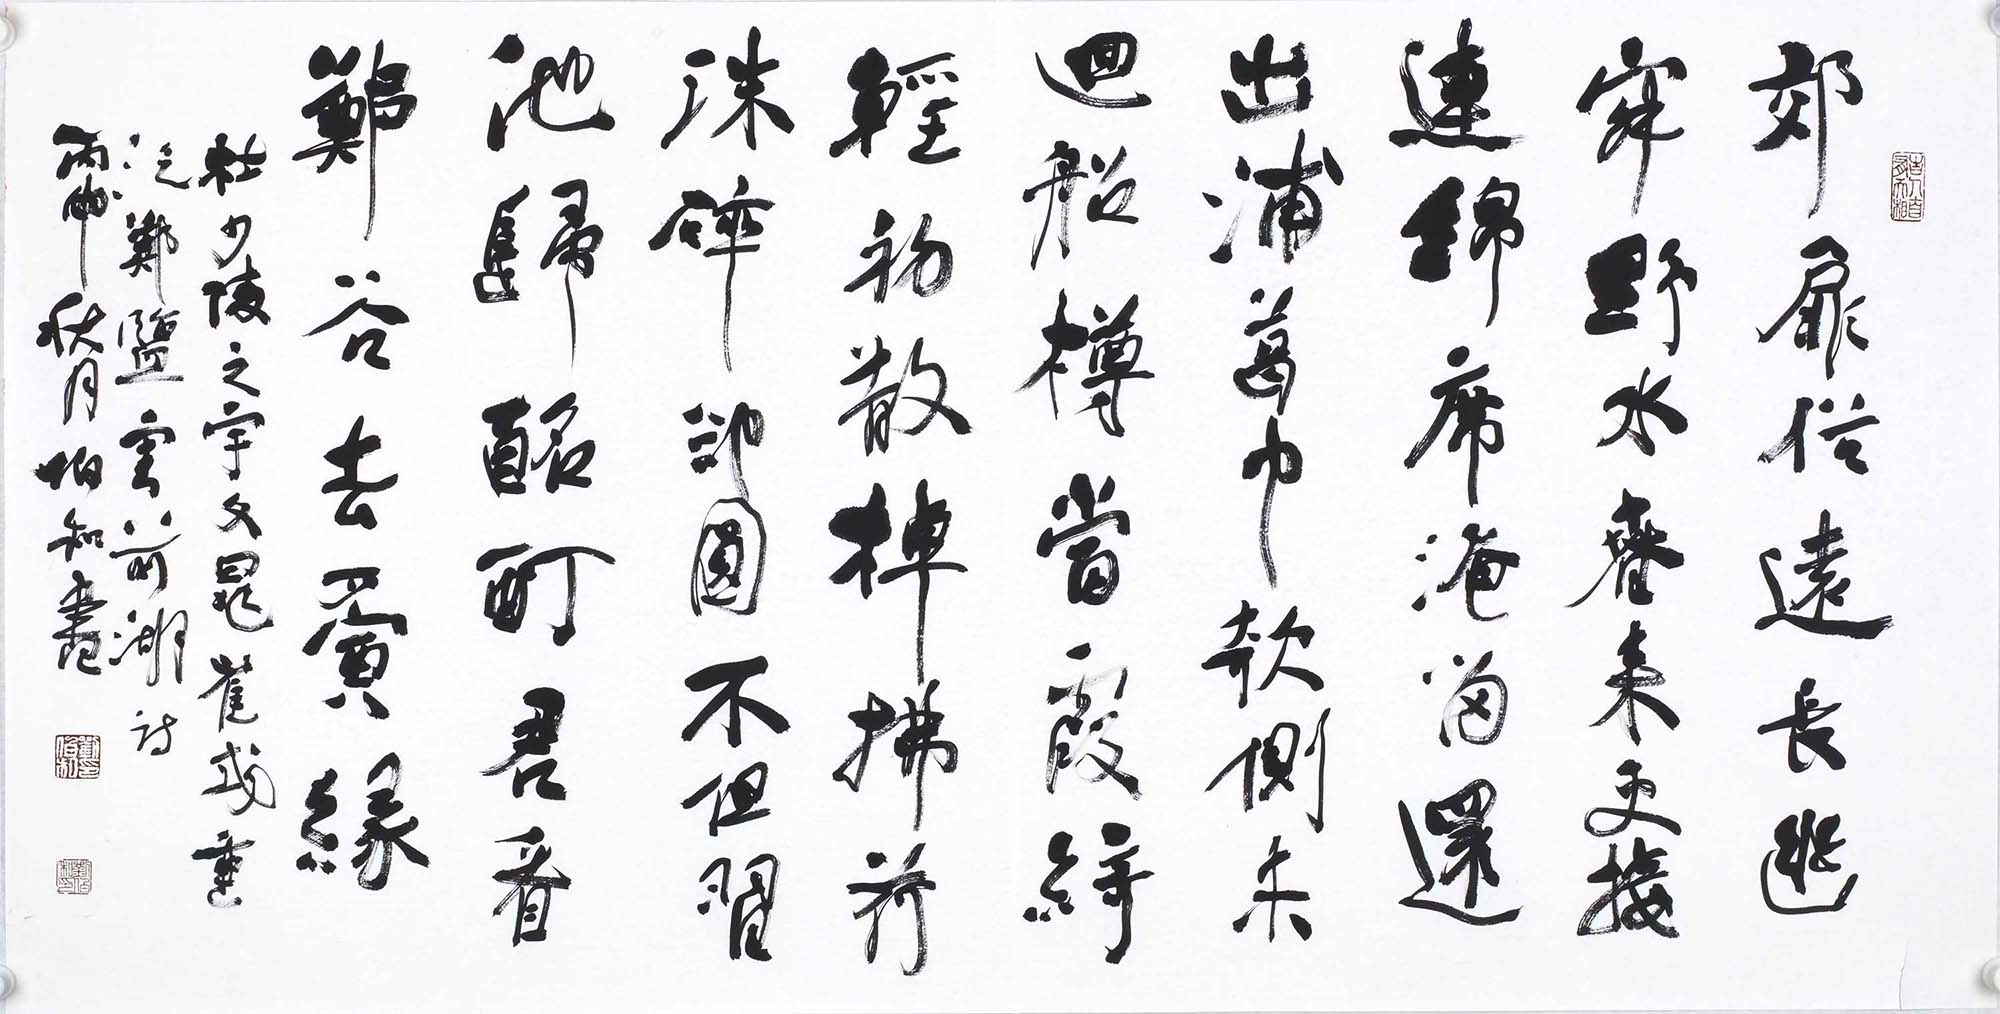 郊扉俗遠長幽
寂野水春來更接
連錦席淹留還
出浦葛巾欹側未
迴船樽當霞綺
輕初散棹拂荷
珠碎卻圓不但習
池歸酩酊君看
鄭谷去夤緣
杜少陵之宇文晁崔彧重
泛鄭監審前湖詩
丙申秋月伯知書